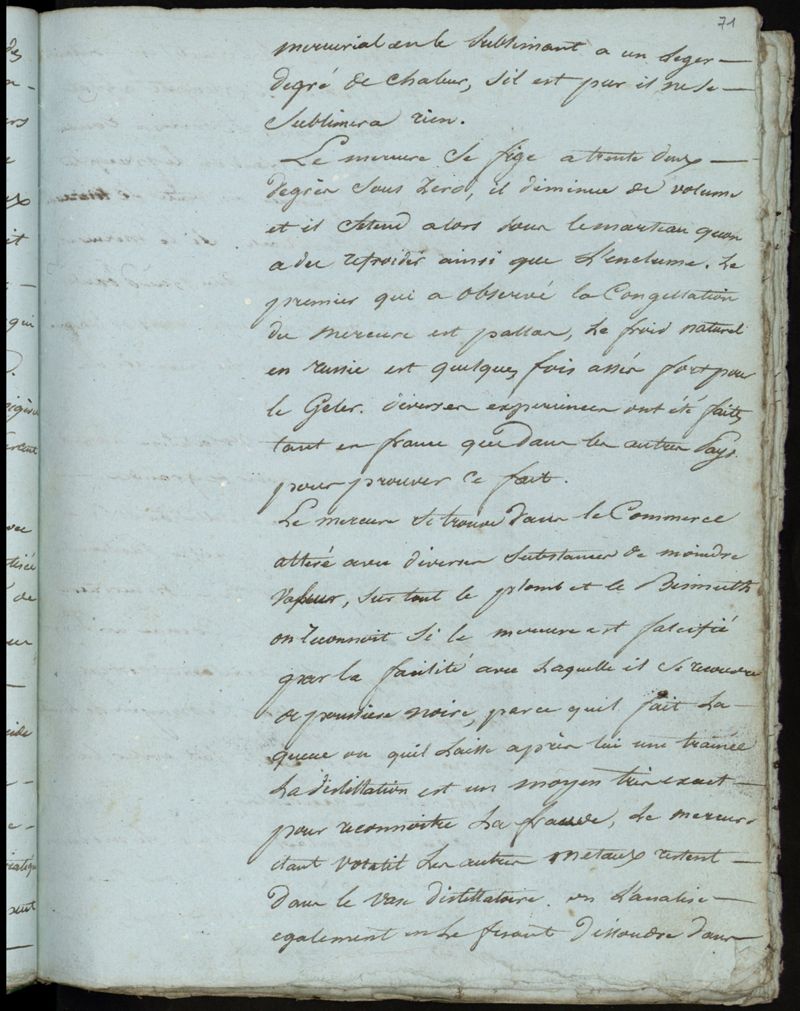 71
mercurial en le Sublimant a un Leger
degré de chaleur, s'il est pur il ne se
Sublimera rien.
Le mercure se fige a trente deux
degrés sous Zero, il diminue de volume
et il setend alors sous le marteau quon
a du refroidir ainsi que L'enclume. Le
premier qui a observé la Congellation
du mercure est pallas, Le froid naturel
en russie est quelques fois assés fort pour
le Geler. diverses experiences ont été faites
tant en france que dans les autres Pays
pour prouver ce fait.
Le mercure se trouve dans le Commerce
alteré avec diverses Substances de moindre
Valeur, Sur tout le plomb et le Bismuth
on reconnoit si le mercure est falcifié
par la facilité avec Laquelle il se recouvre
de poussiere noire, parce quil fait La
queue ou quil Laisse après lui une trainée
La distillation est un moyen très exact
pour reconnoitre La fraude, Le mercure
etant volatil Les autres metaux restent
Dans le vase distillatoire. on L'analise
egalement en Le fesant Dissoudre dans